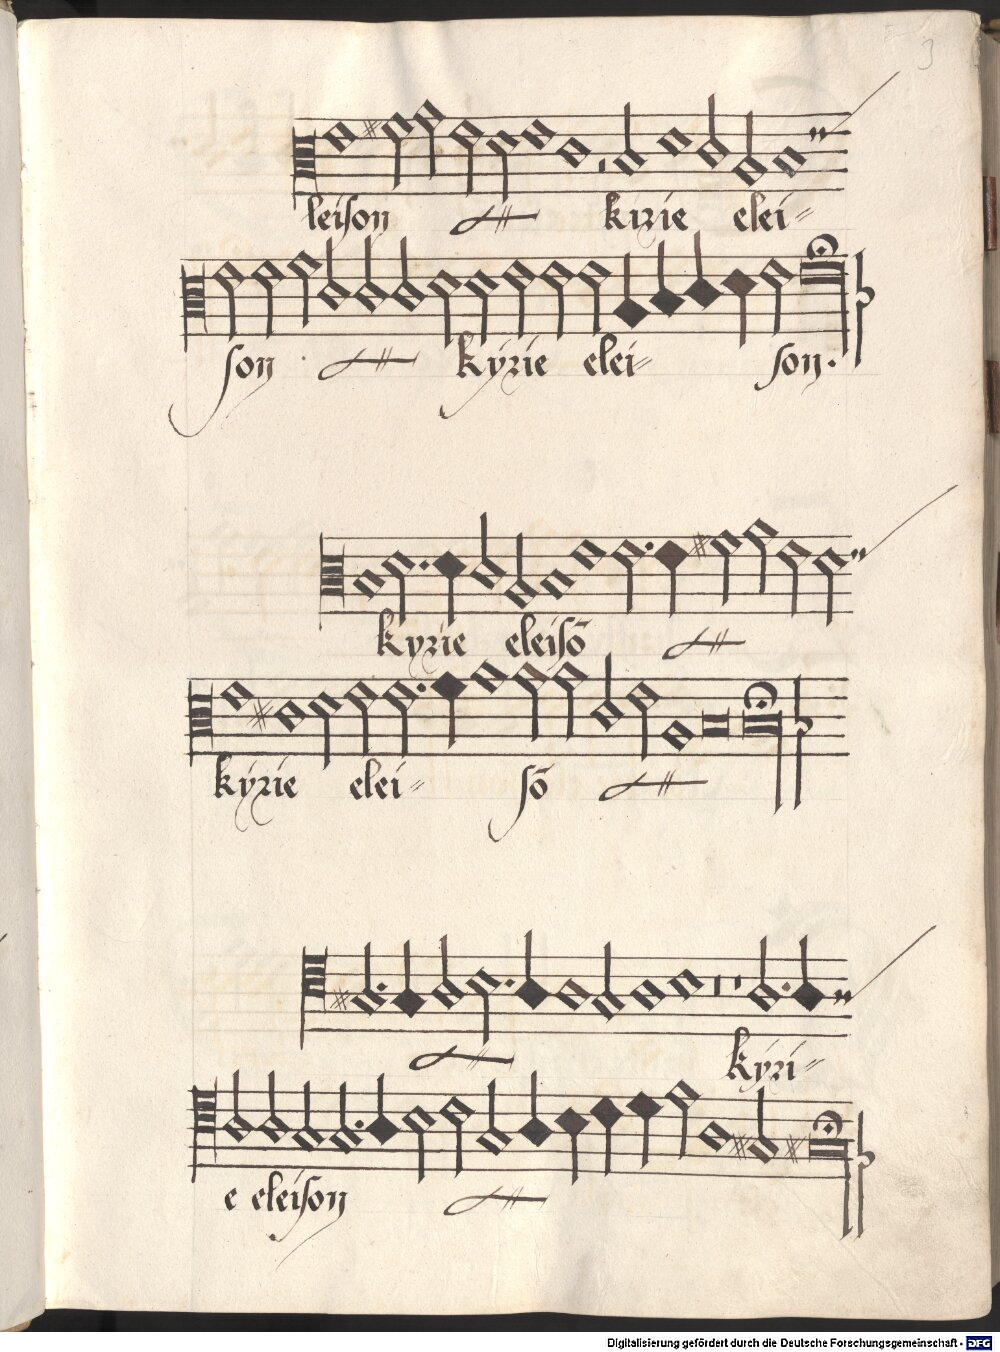 3
leison kirie elei=
son kyrie elei= son.
kyrie eleisō
kyrie elei= sō
kyri=
e eleison
Digitalisierung gefördert durch die Deutsche Forschungsgemeinschaft - DFG